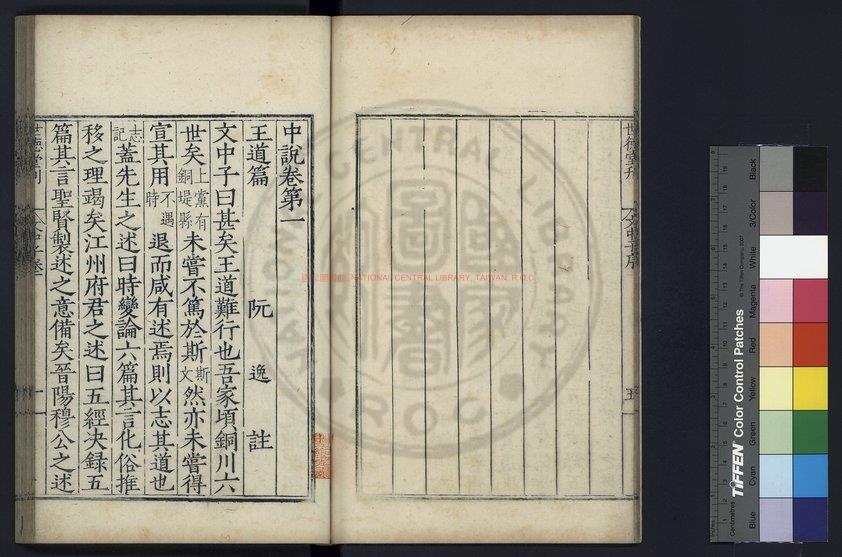 中說卷第一
王道篇 阮逸註
文中子曰甚矣王道難行也吾家頃銅川六
世矣上黨有銅堤縣未嘗不篤於斯斯文然亦未嘗得
宣其用不遇時退而咸有述焉則以志其道也
志記蓋先生之述曰時變論六篇其言化俗推
移之理竭矣江州府君之述曰五經決錄五
篇其言聖賢製述之意備矣晉陽穆公之述
世德堂刊
五
NATIONAL CENTRAL LIBRARY, TAIWAN, R.O.C
TIFFEN Color Control Patches
© The Tiffen Company, 2007
Centimetres
Blue
Cyan
Green
Yellow
Red
Magenta
White
3/Color
Black